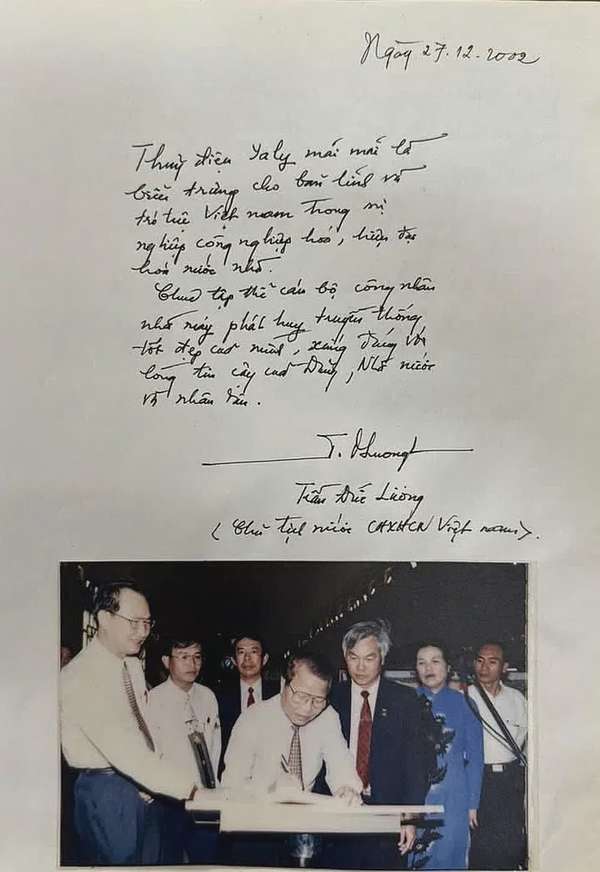 Ngày 27.12.2002
Thuỷ điện Yaly mãi mãi là
biểu trưng cho bản lĩnh và
trí tuệ Việt nam trong sự
nghiệp công nghiệp hoá, hiện đại
hoá nước nhà.
Chúc tập thể cán bộ công nhân
nhà máy phát huy truyền thống
tốt đẹp của mình, xứng đáng với
lòng tin cậy của Đảng, Nhà nước
và nhân dân.
T. DLuong
Trần Đức Lương
(Chủ tịch nước CHXHCN Việt nam).